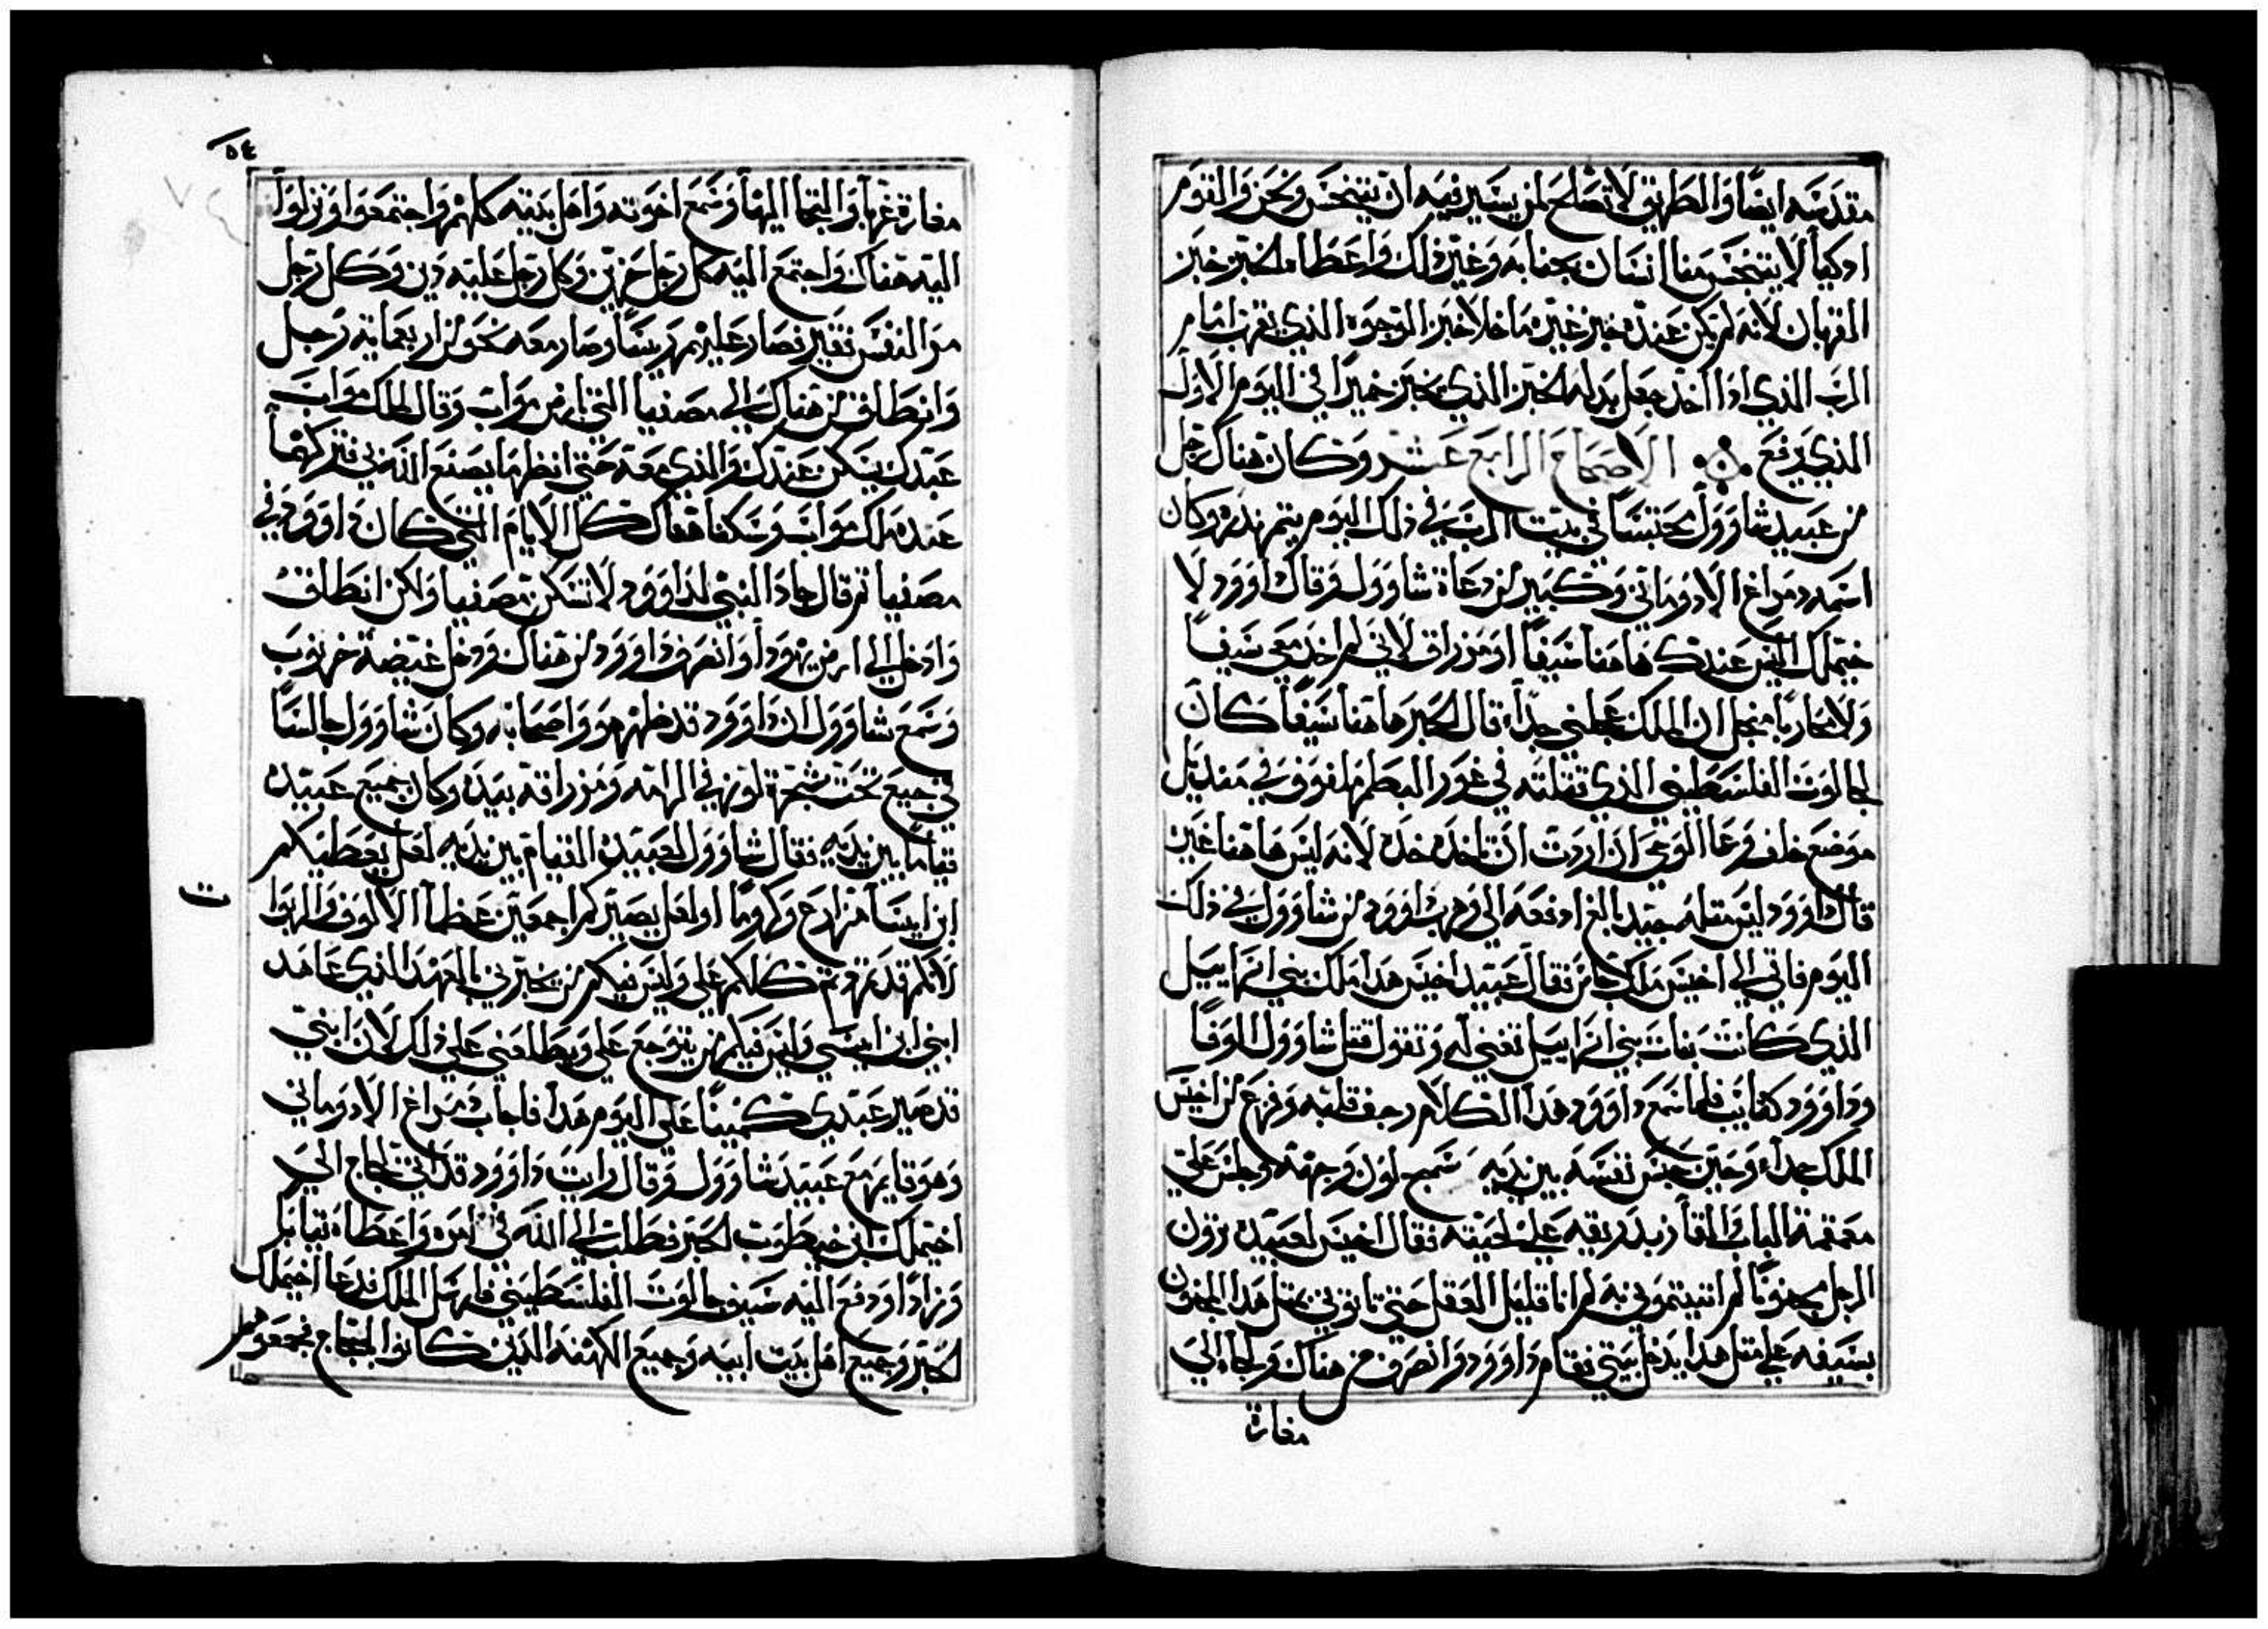 مقدسه ايضًا والطريق لا تصلح لمن يسير فيه ان يتنجس ونحن والقوم
ادكيا لا يتنجس منا انسان بجنابه وغير ذلك واعطاه الحبر خبز
القربان لانه لم يكن عنده خبز غيره ما خلا خبز الوجوه الذي يقرب امام
الرب الذي ادا اخد جعل بدله الخبز الذي يخبز خميرًا في اليوم الاول
الذي يرفع الاصحاح الرابع عشر وكان هناك رجل
من عبيد شاوول محتبسًا في بيت الرب في ذلك اليوم يتم نذره وكان
اسمه دمراغ الادوماني وكبير من رعاة شاوول وقال داوود لا
خيملك اليس عندك هاهنا سيفًا او مزراق لاني لم اخد معي سيفًا
ولا محاربا من اجل ان الملك عجلني جداً، قال الحبر هاهنا سيفًا كان
لجالوت الفلسطيني الذي قتلته في غور البطم ملفوف في منديل
موضع خلف وعا الوحي ان اردت ان تاخده خده لانه ليس هاهنا غيره
قال داوود ليس مثله جيد بالغ ادفعه الي وهرب داوود من شاوول في ذلك
اليوم فاتي الي اخيس ملك جاثر فقال عبيد اخيس هدا ملك بني اسراييل
الذي كانت بنات بني اسراييل تغني له وتقول قتل شاوول الوفًا
وداوود كفايب فلما سمع داوود هدا الكلام رجف قلبه وفزع من اخيس
الملك جداً، وحين حبس نفسه بين يديه سمج لون وجهه وجلس علي
معقمة الباب والقا زبد ريقه علي لحيته فقال اخيس لعبيده ترون
الرجل مجنونًا لم اتيتموني به لم انا قليل العقل حتي تاتوني بمثل هدا المجنون
بسيفه علي مثل هدا يدخل بيتي فقام داوود وانصرف من هناك ولجا الي
مغارة
٥٤
مغارة غربا والتجا اليها وسمع اخوته واهل بيته كلهم واجتمعوا ونزلوا
اليه هناك واجتمع اليه كل رجل حزين وكل رجل عليه دين وكل رجل
مر النفس فقير فصار عليهم رييسًا وصار معه نحو من اربعماية رجل
وانطلق من هناك الي مصفيا التي من مواب وقال لملك مواب
عبدك يسكن عندك والذي معه حتي انظر ما يصنع الله بي فتركهما
عنده ملك مواب وسكنا هناك كل الايام التي كان داوود في
مصفيا ثم قال جاد النبي لداوود لا تسكن مصفيا ولكن انطلق
وادخل الي ارض يهودا وانصرف داوود من هناك ودخل غيضة خرنوب
وسمع شاوول ان داوود قد ظهر هو واصحابه وكان شاوول جالسًا
في جبع تحت شجرة لوز في الرامه ومزراقه بيده وكان جميع عبيده
قيامًا بين يديه فقال شاوول لعبيده القيام بين يديه لعل يعطيكم
ابن ايسا مزارع وكرومًا او لعل يصيركم اجمعين عظما الالوف والربوا
ت
لانكم قد تمردتم كلكم علي وليس فيكم من يخبرني بالعهد الذي عاهد
ابني ابن ايسي وليس فيكم من يتوجع علي ويطلعني علي ذلك لان ابني
قد صير عبدي كمينًا علي اليوم هدا فاجاب دمراغ الادوماني
وهو قايم مع عبيد شاوول وقال رايت داوود قد اتي لجاج الي
اخيملك ابن خيطوب الحبر فطلب الي الله في امره واعطاه قيامًا
وزادًا ودفع اليه سيف جالوت الفلسطيني فارسل الملك فدعا اخيملك
الحبر وجميع اهل بيت ابيه وجميع الكهنه الدين كانوا لجاج فجمعوهم